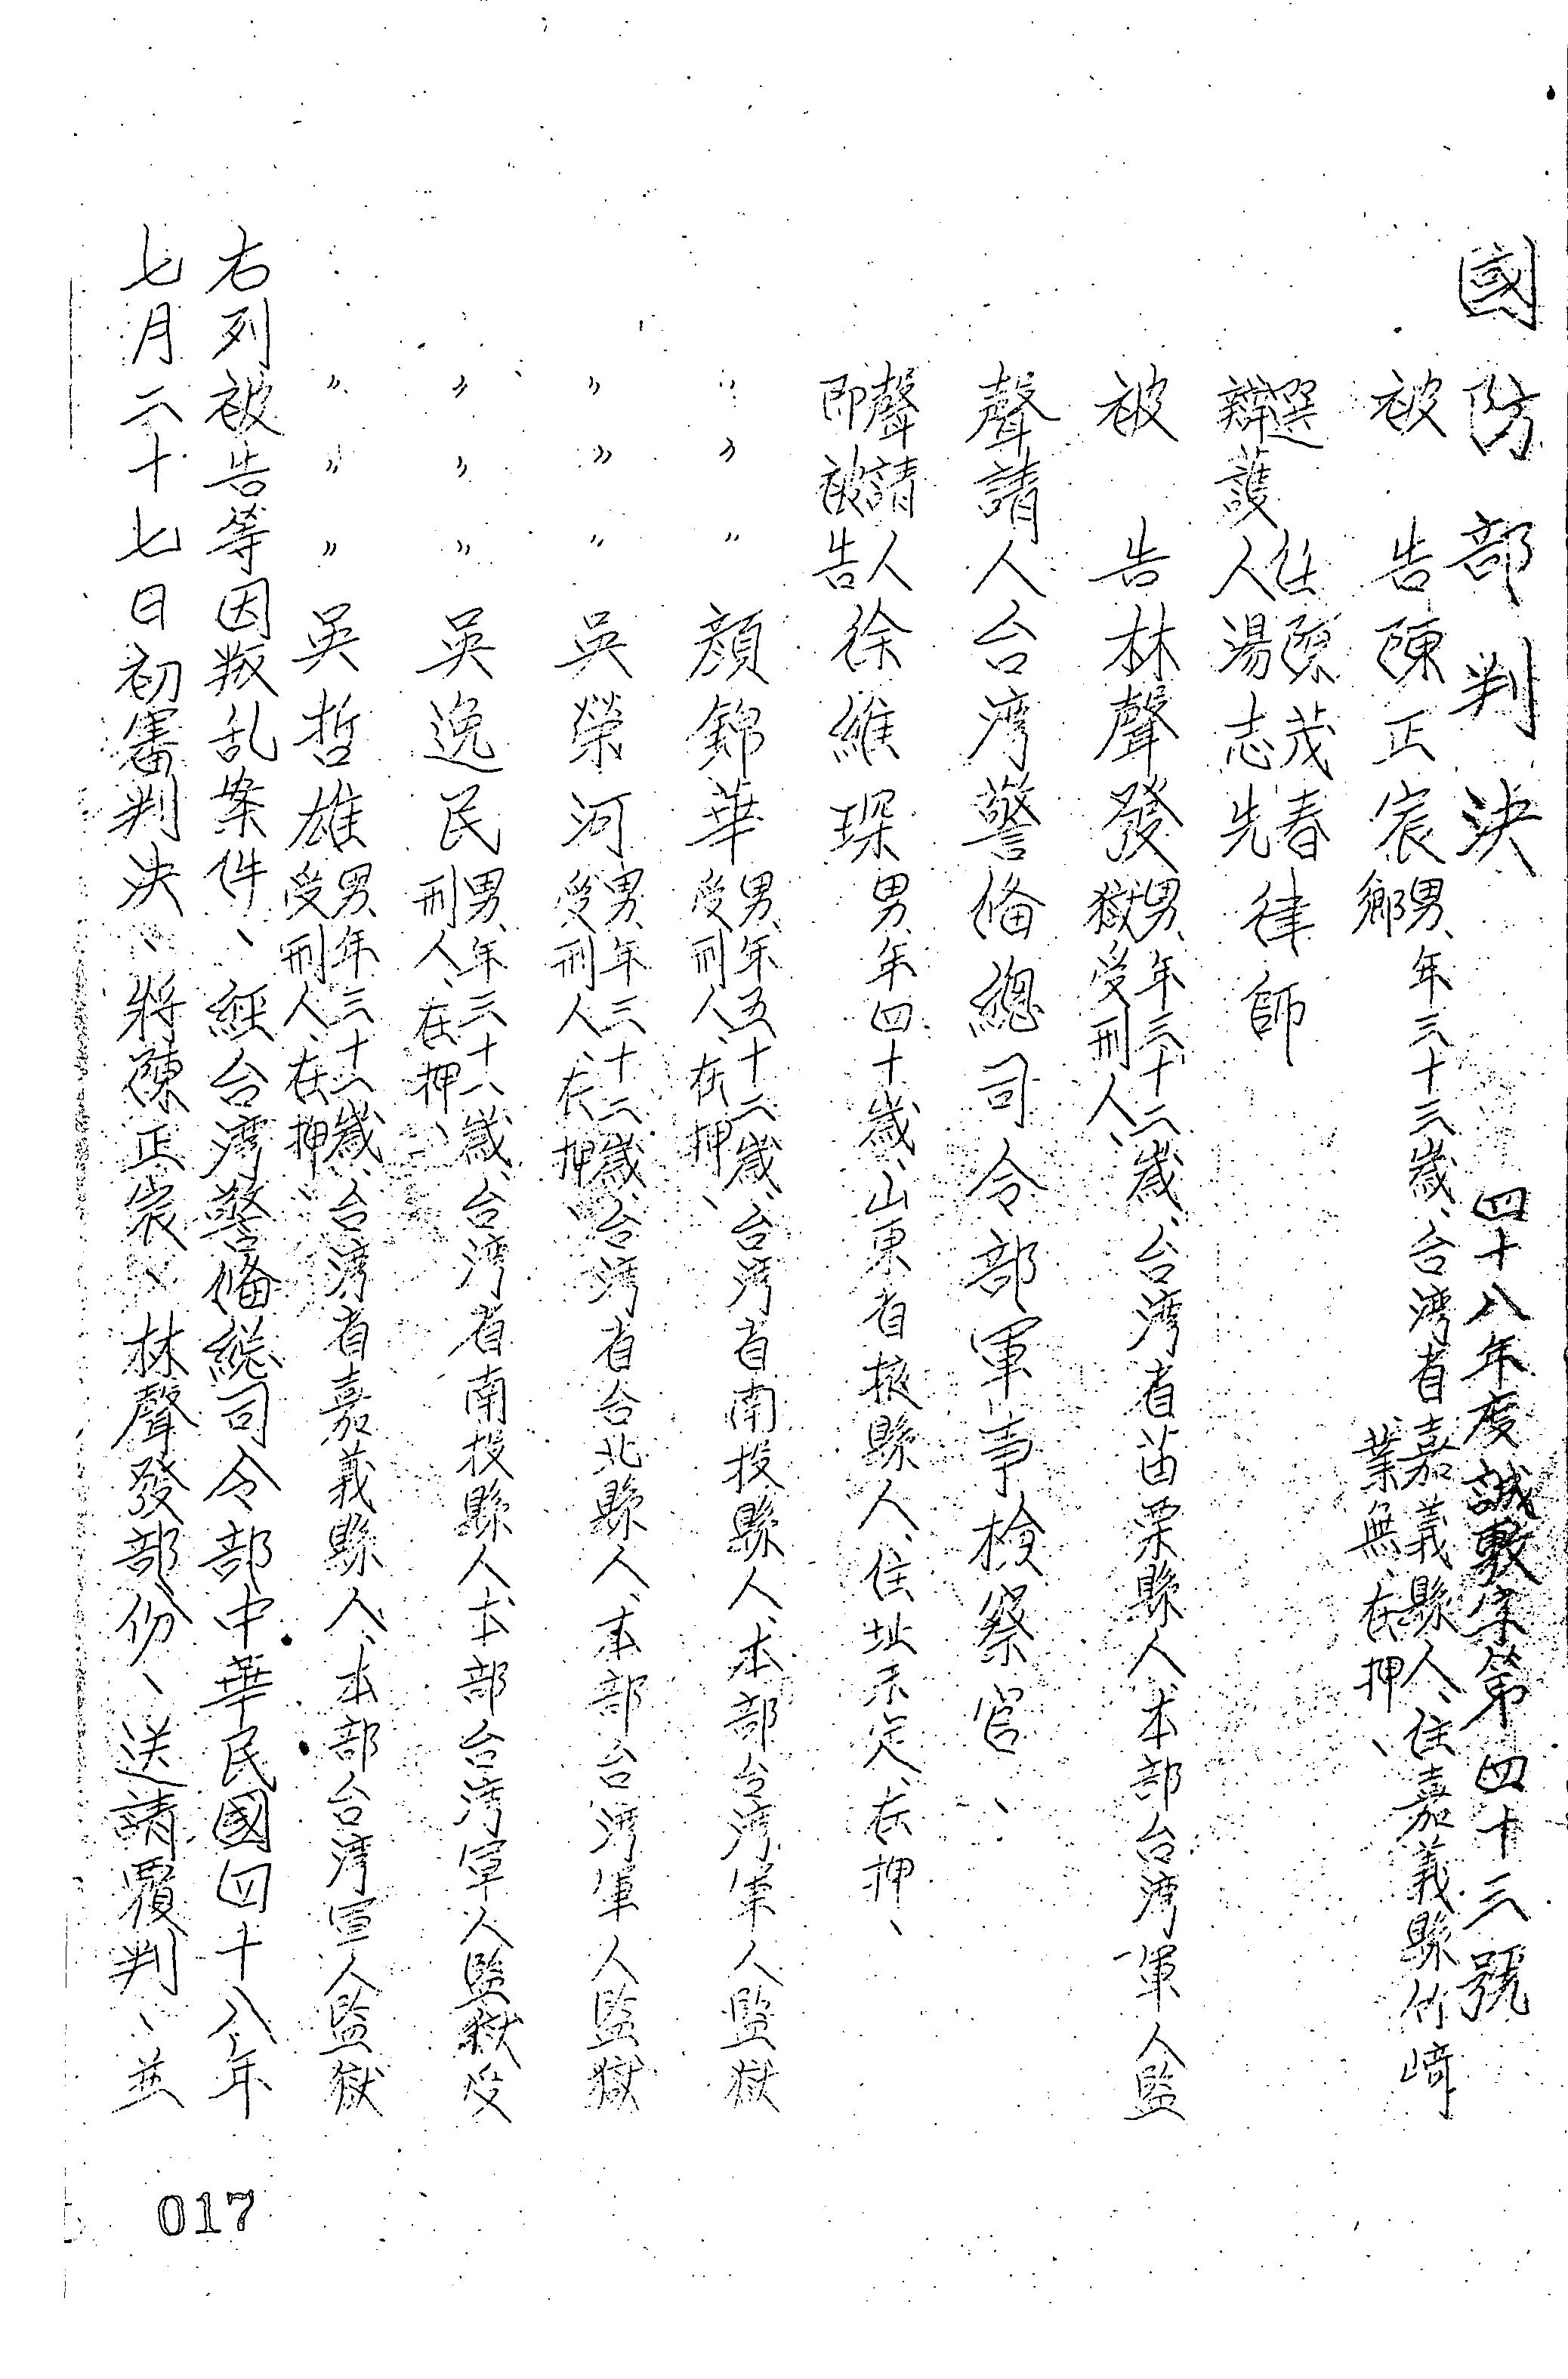 國防部判決　四十八年度誠敷字第四十三號
被告陳正宸男、年三十三歲、台湾省嘉義縣人、住嘉義縣竹崎
鄉　業無、在押、
選任辯護人陳茂春律師
湯志先
被告林聲發男、年三十二歲、台湾省苗栗縣人、本部台湾軍人監
獄受刑人、
聲請人台湾警俻總司令部軍事檢察官、
聲請人
即被告徐維琛男、年四十歲、山東省掖縣人、住址不定、在押、
〃〃〃顏錦華男、年五十二歲、台湾省南投縣人、本部台湾軍人監獄
受刑人、在押、
〃〃〃吳榮河男、年三十二歲、台湾省台北縣人、本部台湾軍人監獄
受刑人、在押、
〃〃〃吳逸民男、年三十八歲、台湾省南投縣人本部台湾軍人監獄受
刑人、在押、
〃〃〃吳哲雄男、年三十二歲、台湾省嘉義縣人、本部台湾軍人監獄
受刑人、在押、
右列被告等因叛乱案件、經台湾警俻総司令部中華民國四十八年
七月二十七日初審判決、將陳正宸、林聲發部份、送請覆判、並
017